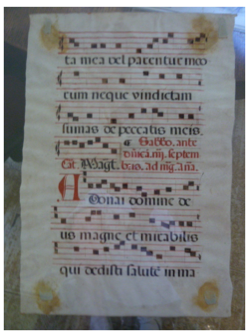 ta mea vel parentum meo
rum neque vindictam
sumas de peccatis meis.
Sabbo, ante
dnica. iiij. septem
Ad Magt.
bris, ad
Adonai domine de
us magne et mirabilis
qui dedisti salute in ma